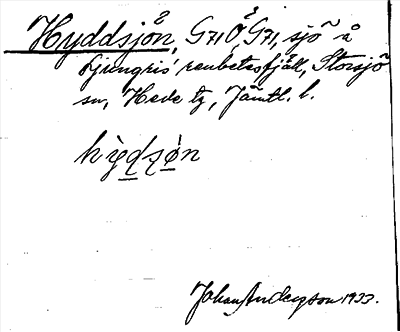 Hyddsjön, G71 Ö G71, sjö å
Ljungris' renbetesfjäll, Storsjö
sn, Hede tg, Jämtl. l.
hỳdsøn
Johan Anderson 1933.